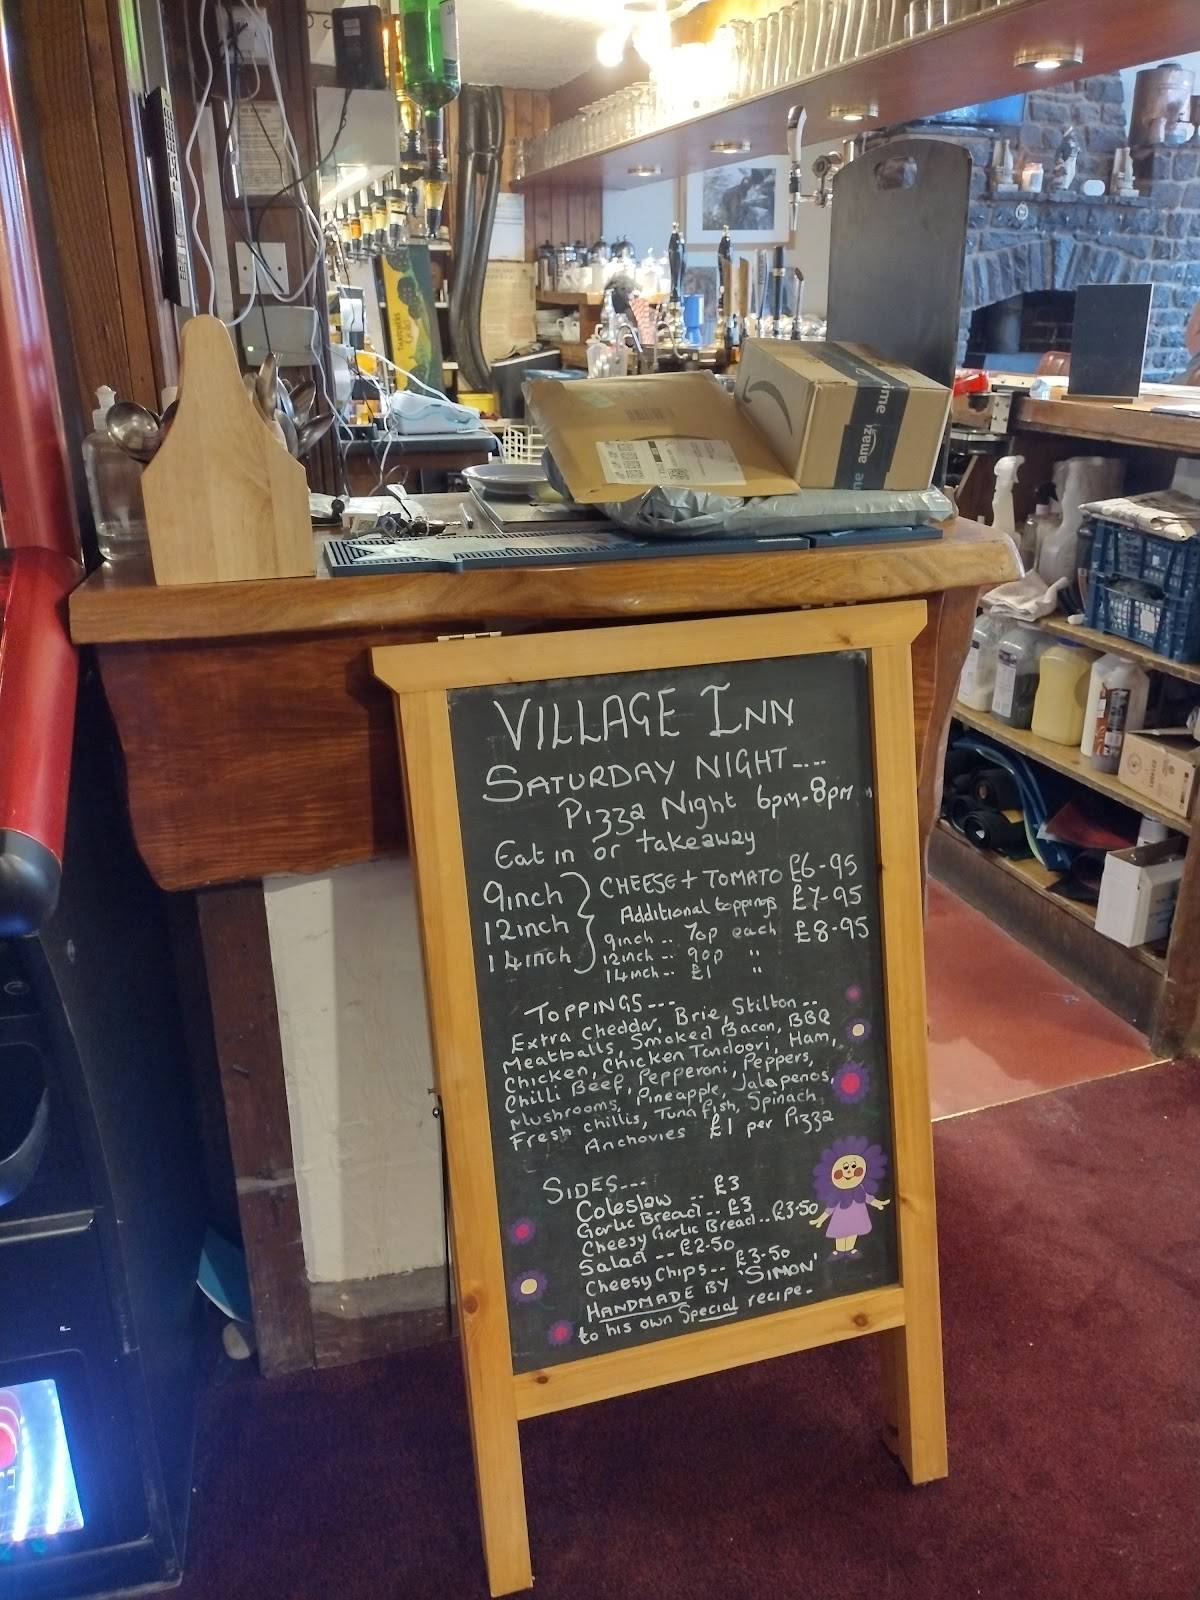 VILLAGE INN
SATURDAY NIGHT----
Pizza Night 6pm-8pm
Eat in or takeaway
9inch } CHEESE + TOMATO £6-95
12inch £7-95
14inch £8-95
Additional toppings
9inch -- 70p each
12inch -- 90p "
14inch -- £1 "
TOPPINGS---
Extra Cheddar, Brie, Stilton --
Meatballs, Smoked Bacon, BBQ
Chicken, Chicken Tandoori, Ham,
Chilli Beef, Pepperoni, Peppers,
Mushrooms, Pineapple, Jalapenos,
Fresh chillis, Tuna fish, Spinach
Anchovies £1 per Pizza
SIDES---
Coleslaw -- £3
Garlic Bread -- £3
Cheesy Garlic Bread -- £3-50
Salad -- £2-50
Cheesy Chips -- £3-50
HANDMADE BY 'SIMON'
to his own Special recipe.
amazon
THATCHERS